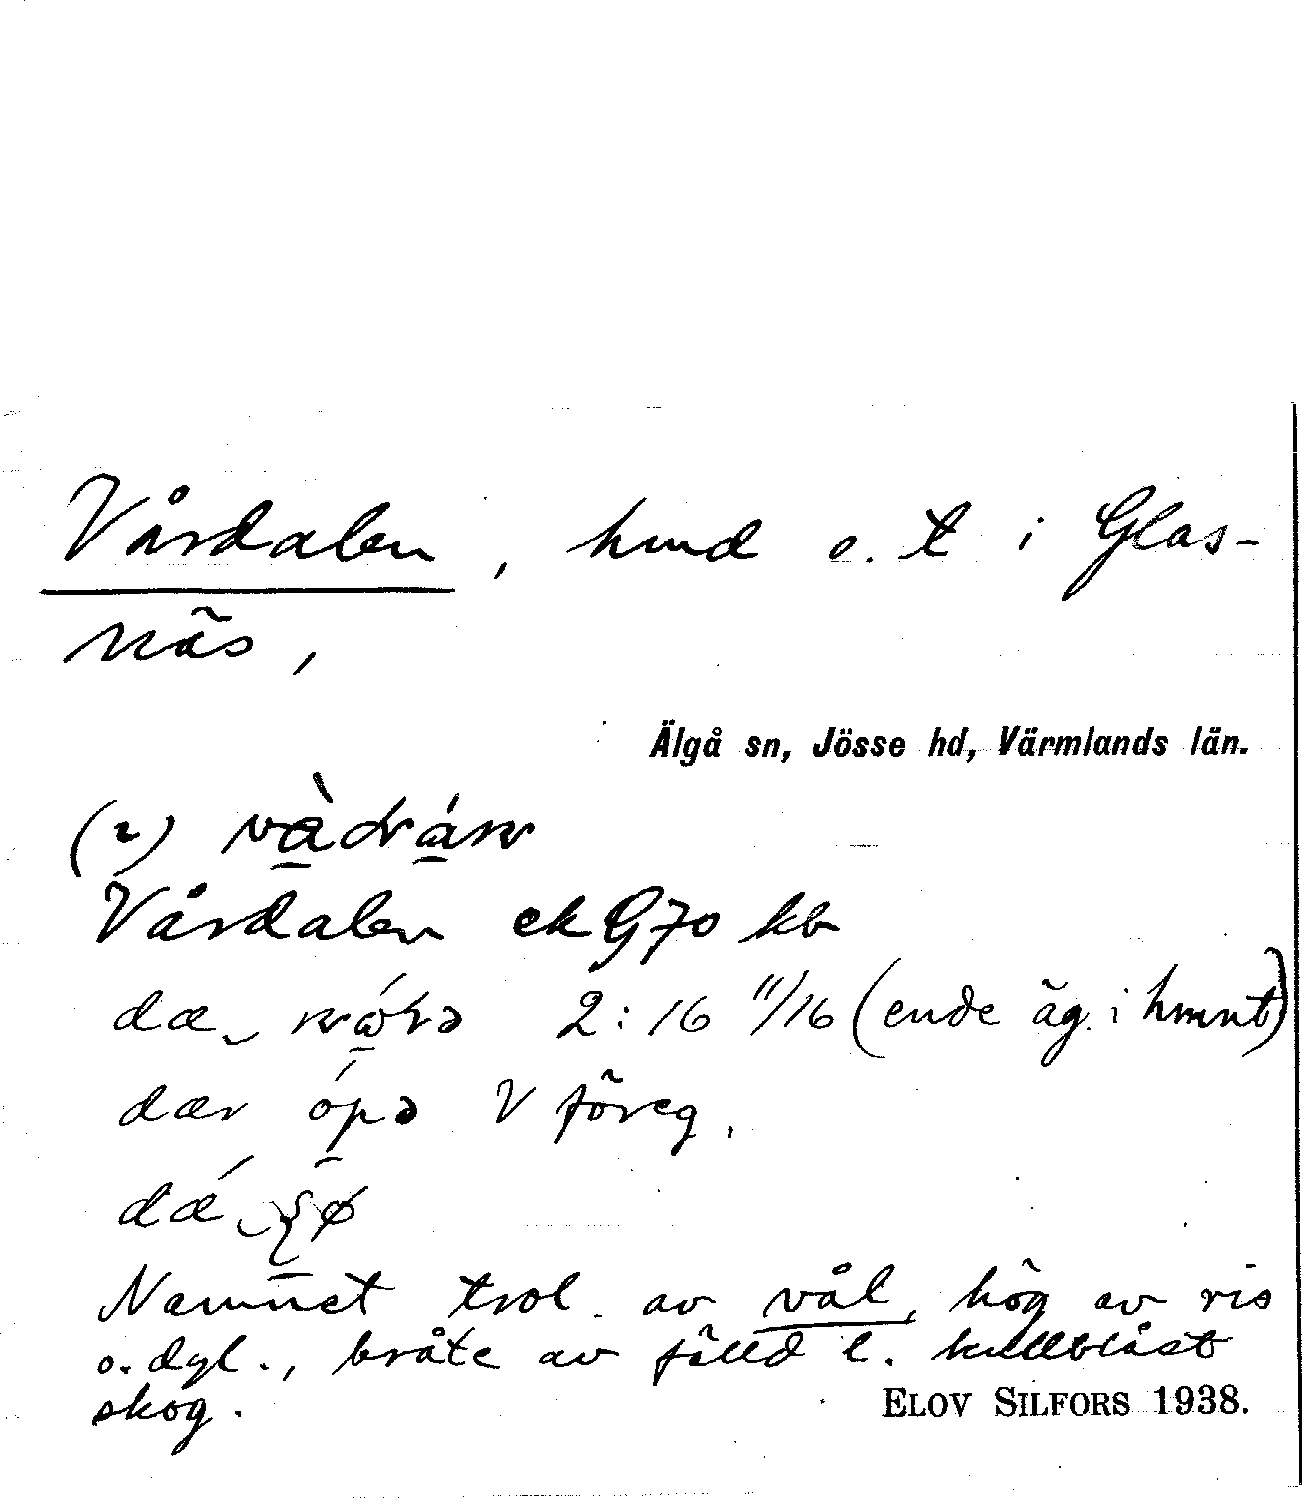 Vårdalen, hmd o. t i Glas-
näs,
Älgå sn, Jösse hd, Värmlands län.
(2)
Vårdalen ek G70 kb
dæ 2:16 11/16 (ende äg. i hmnt)
dær ópə V föreg.
dǽ
Namnet trol. av vål, hög av ris
o. dgl., bråte av fälld l. kullblåst
skog.
ELOV SILFORS 1938.